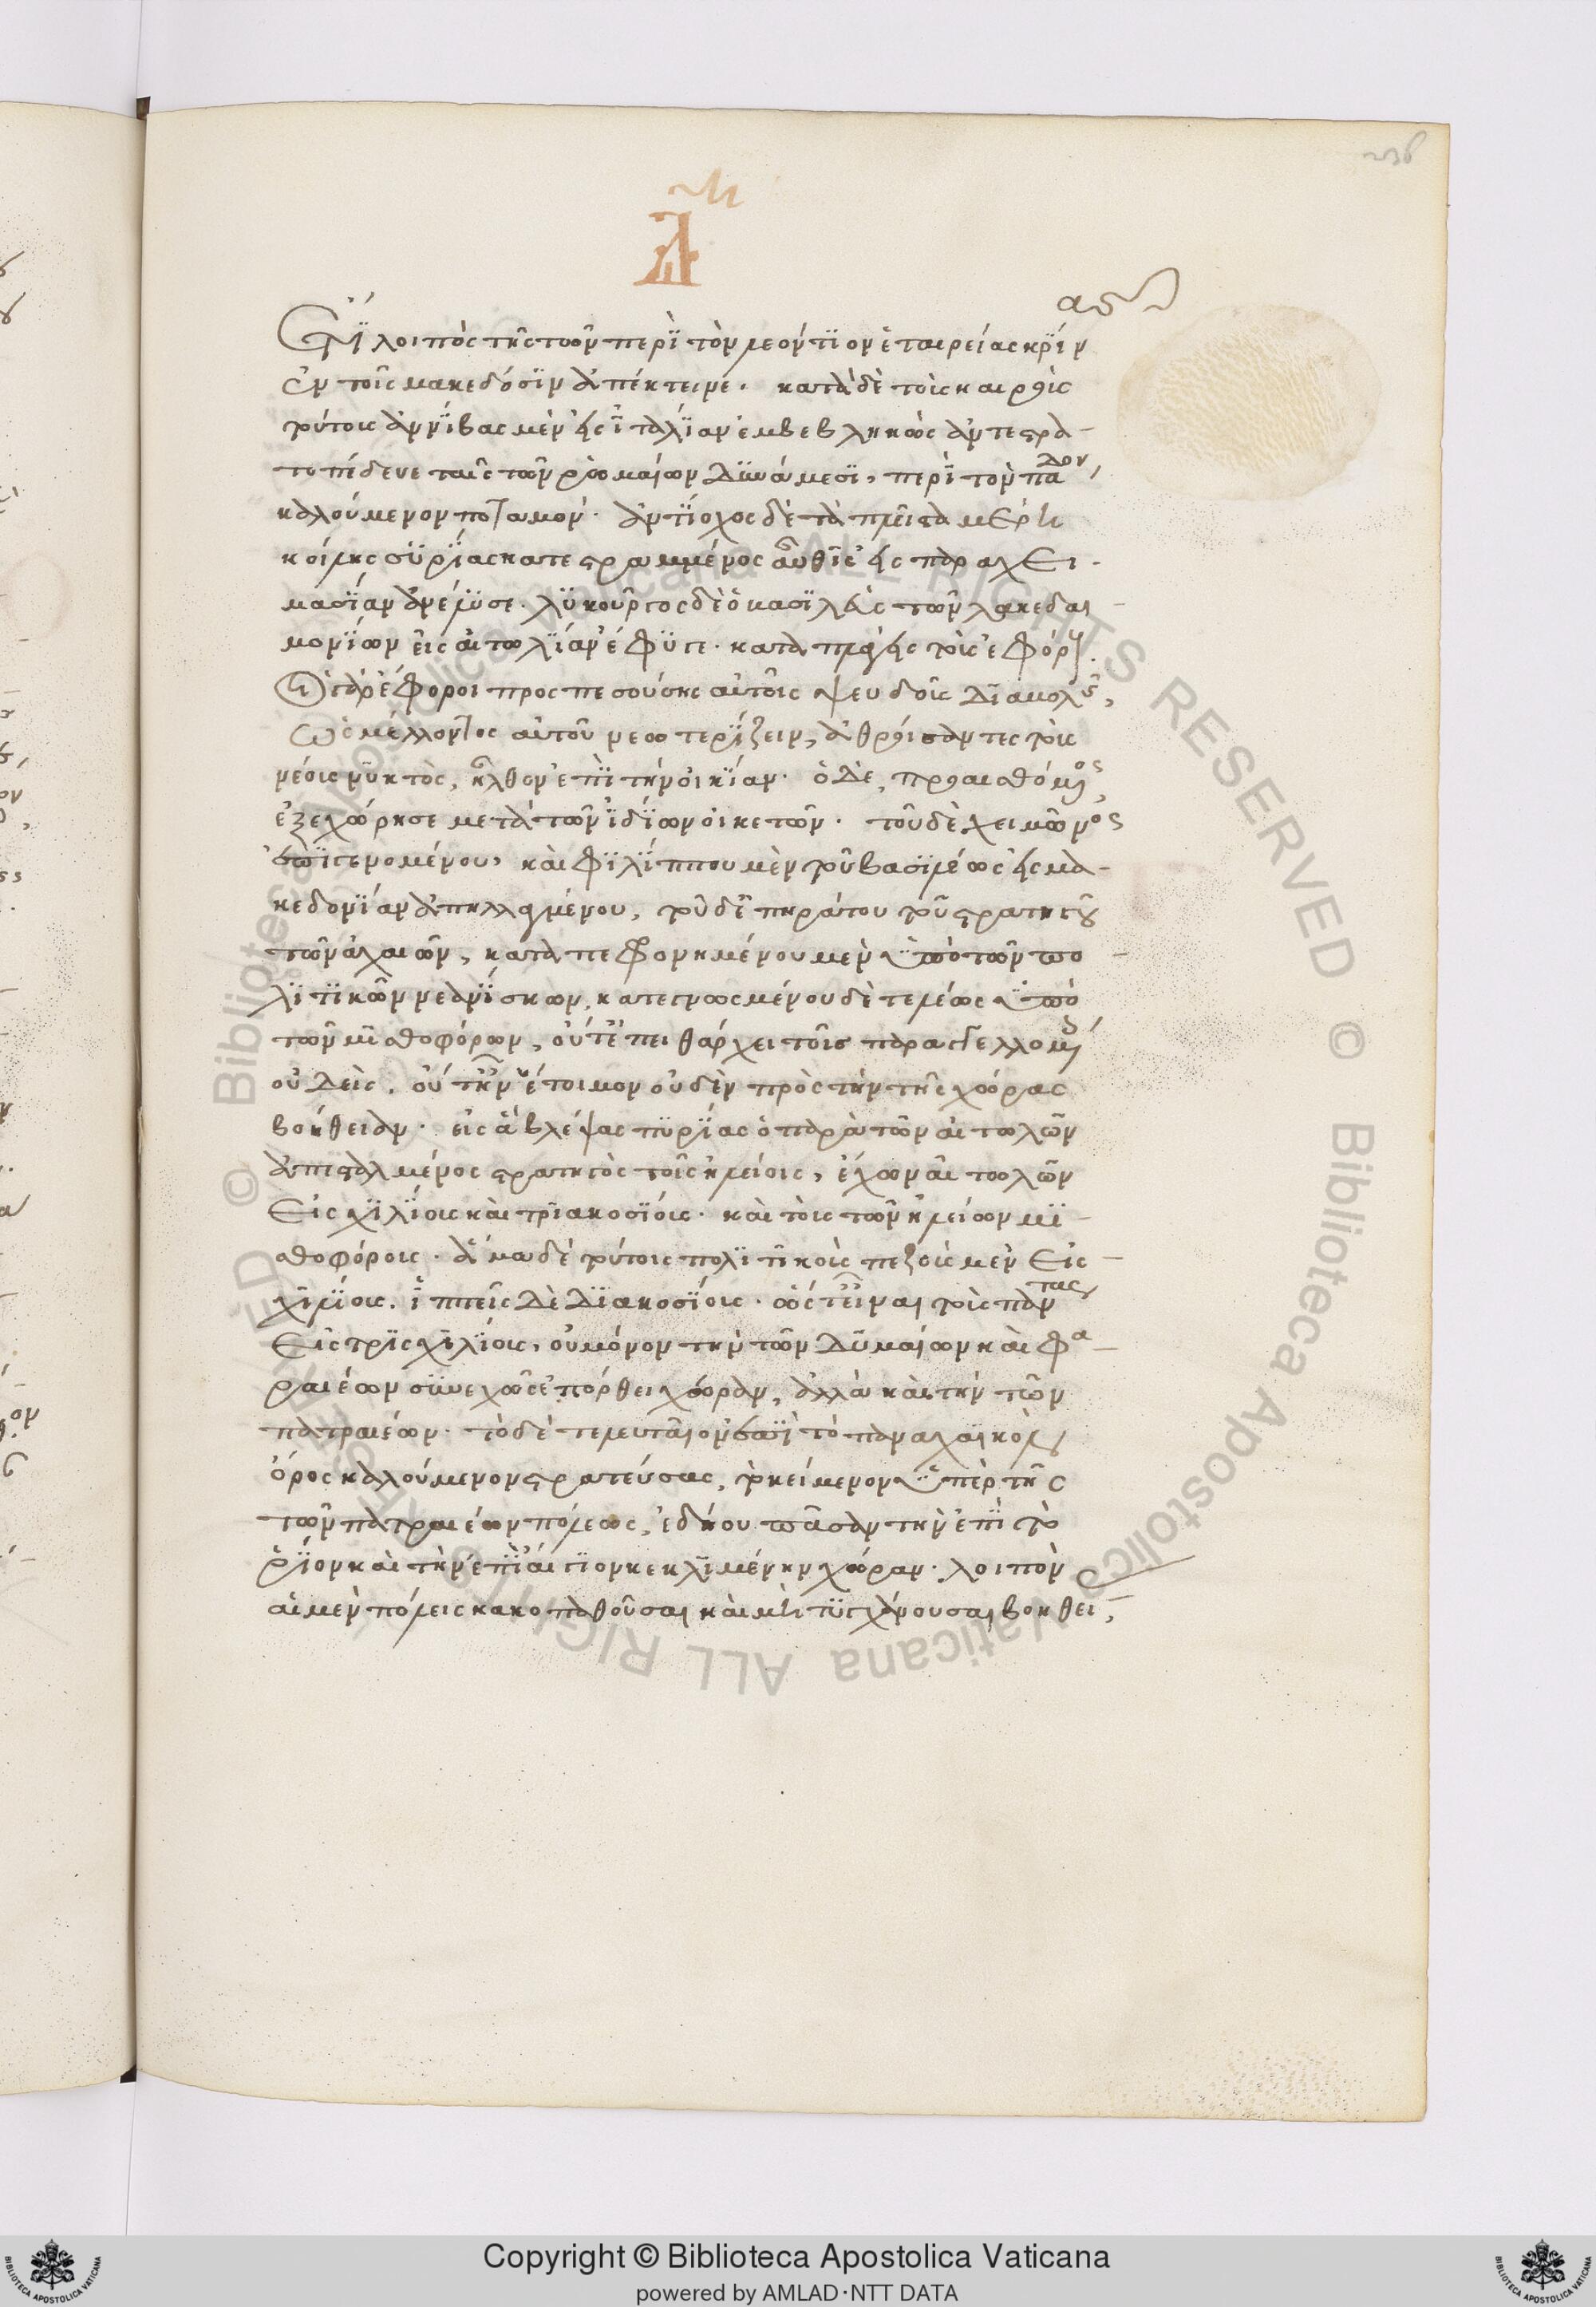 236
ἔτι λοιπὸς τῆς τῶν περὶ τὸν λεόντιον ἑταιρείας κρίν
ἐν τοῖς μακεδόσιν ἀπέκτεινε. κατὰ δὲ τοὺς καιροὺς
τούτους ἀννίβας μὲν εἰς ἰταλίαν ἐμβεβληκὼς ἀντεστρα-
τοπέδευε ταῖς τῶν ῥωμαίων δυνάμεσι, περὶ τὸν πάδον
καλούμενον ποταμόν. ἀντίοχος δὲ τὰ πλεῖστα μέρη
κοίλης συρίας κατεστραμμένος αὖθις εἰς παραχει-
μασίαν ἀνέλυσε. λυκοῦργος δὲ ὁ βασιλεὺς τῶν λακεδαι-
μονίων εἰς αἰτωλίαν ἔφυγε. καταπλαγεὶς τοὺς ἐφόρους.
οἱ γὰρ ἔφοροι προσπεσούσης αὐτοῖς ψευδοῦς διαβολῆς,
ὡς μέλλοντος αὐτοῦ νεωτερίζειν, ἀθροίσαντες τοὺς
νέους νυκτὸς, ἦλθον ἐπὶ τὴν οἰκίαν. ὁ δὲ, προαισθόμενος,
ἐξεχώρησε μετὰ τῶν ἰδίων οἰκετῶν. τοῦ δὲ χειμῶνος
ἐπιγενομένου, καὶ φιλίππου μὲν τοῦ βασιλέως εἰς μα-
κεδονίαν ἀπηλλαγμένου, τοῦ δ' ἐπηράτου τοῦ στρατηγοῦ
τῶν ἀχαιῶν, καταπεφρονημένου μὲν ὑπὸ τῶν πο-
λιτικῶν νεανίσκων, κατεγνωσμένου δὲ τελέως ὑπὸ
τῶν μισθοφόρων, οὔτ' ἐπειθάρχει τοῖς παραγγελλομένοις
οὐδεὶς. οὔτ' ἦν ἕτοιμον οὐδὲν πρὸς τὴν τῆς χώρας
βοήθειαν. εἰς ἃ βλέψας πυρίας ὁ παρὰ τῶν αἰτωλῶν
ἀπεσταλμένος στρατηγὸς τοῖς ἠλείοις, ἔχων αἰτωλῶν
εἰς χιλίους καὶ τριακοσίους. καὶ τοὺς τῶν ἠλείων μι-
σθοφόρους. ἅμα δὲ τούτοις πολιτικοὺς πεζοὺς μὲν εἰς
χιλίους. ἱππεῖς δὲ διακοσίους. ὥστ' εἶναι τοὺς πάντας
εἰς τρισχιλίους, οὐ μόνον τὴν τῶν δυμαίων καὶ φα-
ραιέων συνεχῶς ἐπόρθει χώραν, ἀλλὰ καὶ τὴν τῶν
πατραιέων. τὸ δὲ τελευταῖον ἐπὶ τὸ παναχαϊκὸν
ὄρος καλούμενον στρατεύσας, τὸ κείμενον ὑπὲρ τῆς
τῶν πατραιέων πόλεως, ἐδῄου πᾶσαν τὴν ἐπὶ τὸ
ῥίον καὶ τὴν ἐπὶ αἴγιον κεκλιμένην χώραν. λοιπὸν
αἱ μὲν πόλεις κακοπαθοῦσαι καὶ μὴ τυγχάνουσαι βοηθεί-
Copyright © Biblioteca Apostolica Vaticana
powered by AMLAD·NTT DATA
© Biblioteca Apostolica Vaticana ALL RIGHTS RESERVED
© Biblioteca Apostolica Vaticana ALL RIGHTS RESERVED